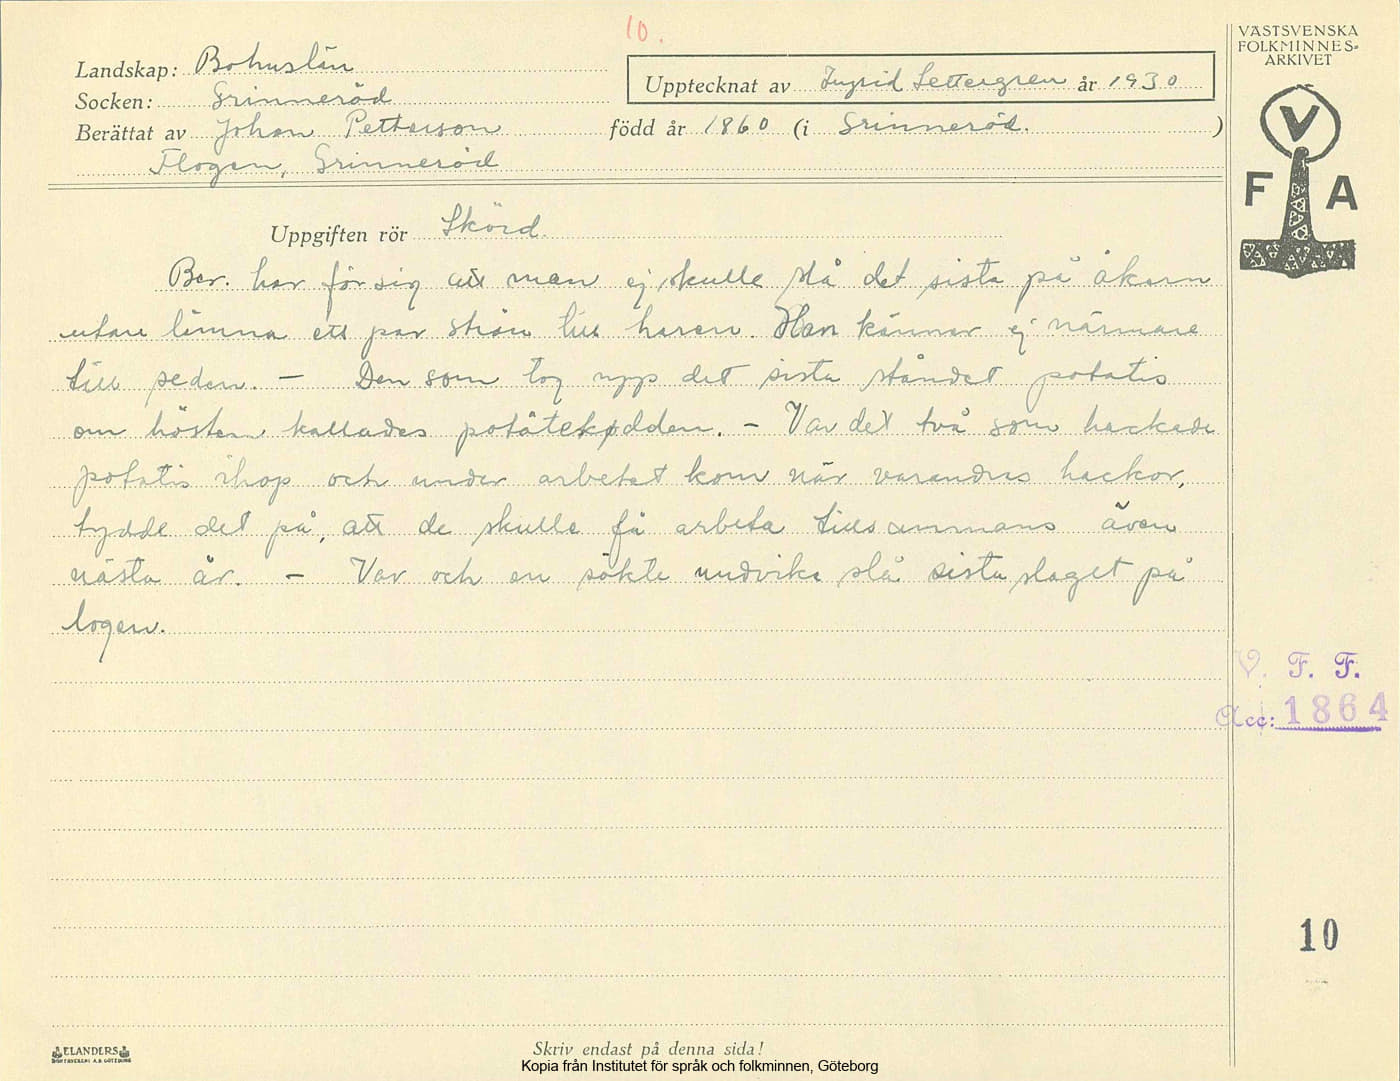 10.
VÄSTSVENSKA
FOLKMINNES-
ARKIVET
Landskap: Bohuslän
Upptecknat av Ingrid Settergren år 1930
Socken: Grinneröd
Berättat av Johan Petterson född år 1860 (i Grinneröd. )
Flogen, Grinneröd
V
F A
Uppgiften rör Skörd.
Ber. har för sig att man ej skulle slå det sista på åkern
utan lämna ett par strån till haren. Han känner ej närmare
till seden. — Den som tog upp det sista ståndet potatis
om hösten kallades potätekødden. — Var det två som hackade
potatis ihop och under arbetet kom när varandras hackor,
tydde det på, att de skulle få arbeta tillsammans även
nästa år. — Var och en sökte undvika slå sista slaget på
logen.
V. F. F.
Acc: 1864
10
ELANDERS
BOKTRYCKERI A.B. GÖTEBORG
Skriv endast på denna sida!
Kopia från Institutet för språk och folkminnen, Göteborg